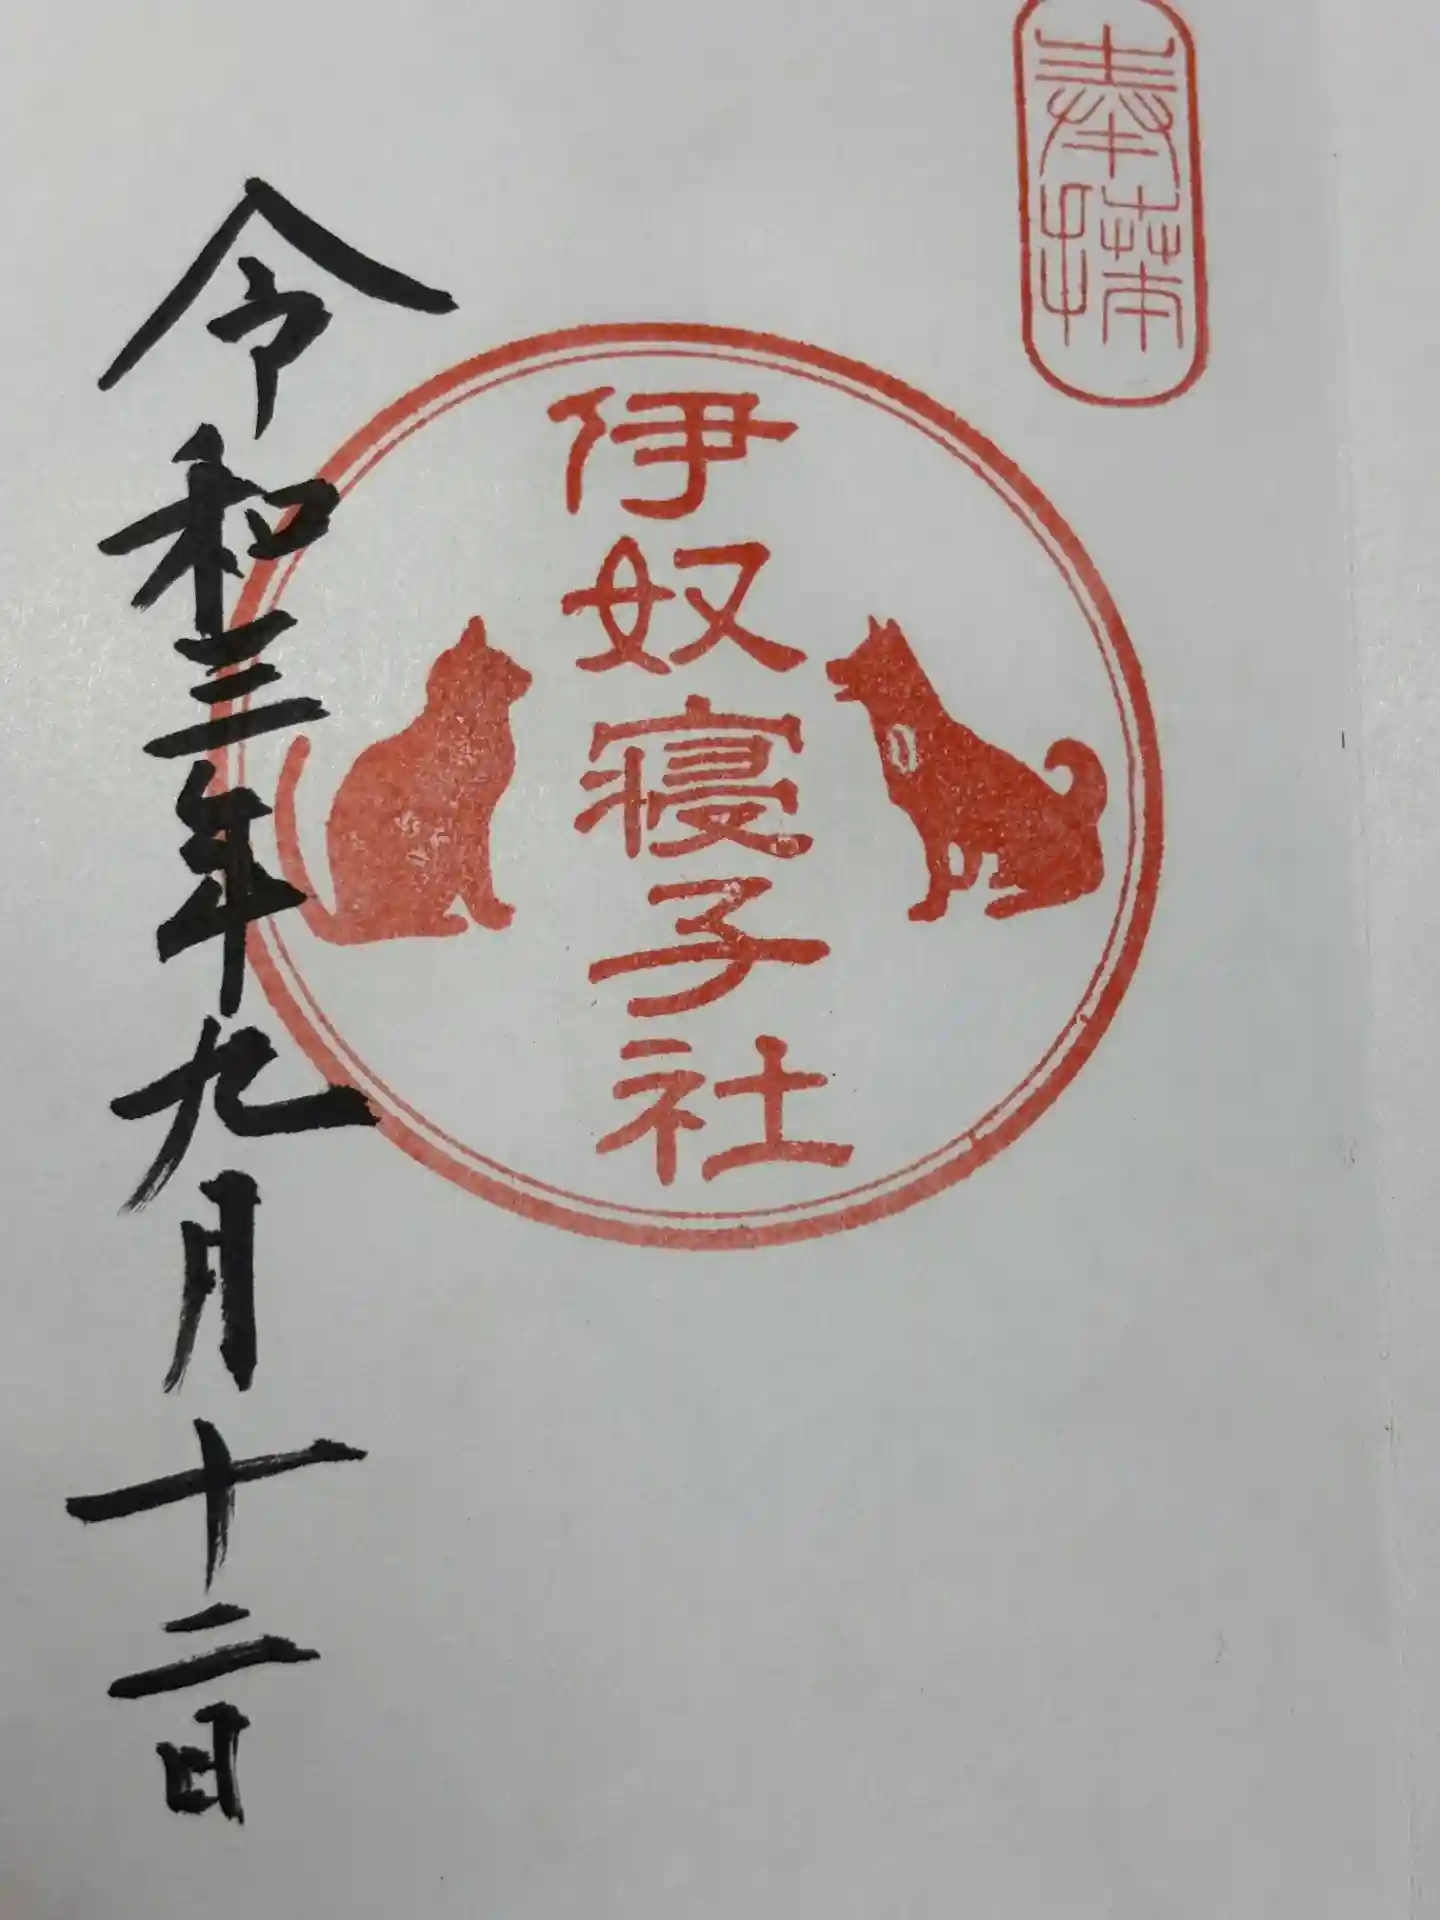 奉拝
伊奴寝子社
令和三年九月十二日